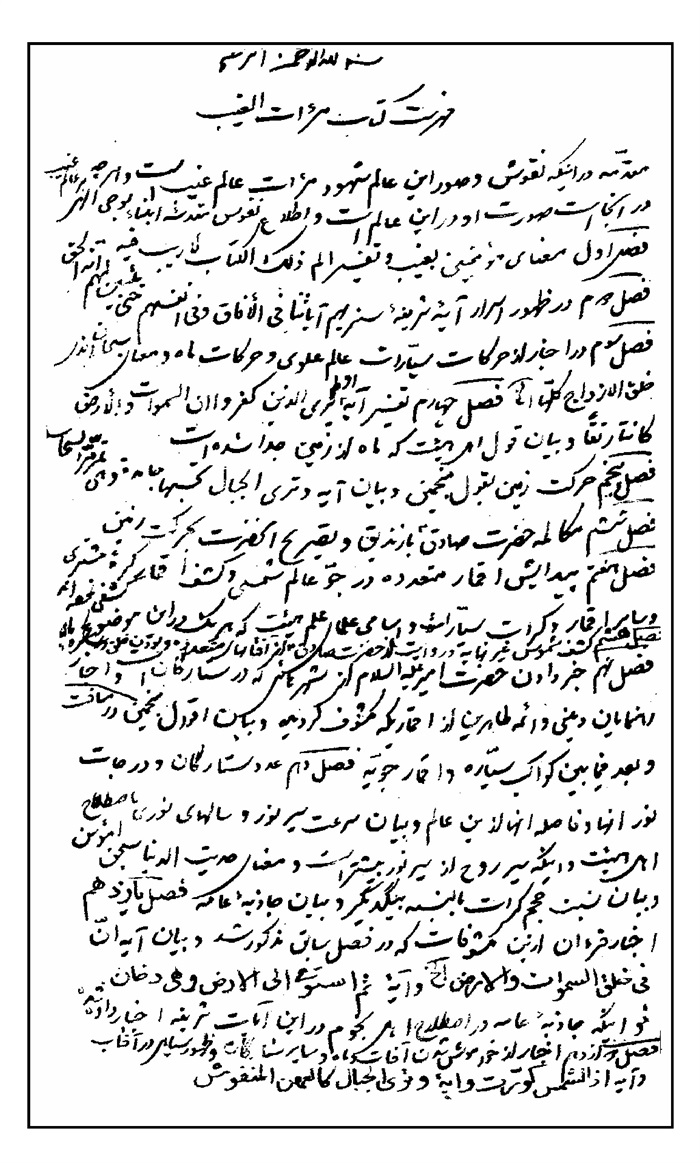 بسم الله الرحمن الرحیم
فهرست کتاب مرآت الغیب
مقدمه در اینکه نقوش و صور این عالم شهود مرآت عالم غیب است و هر چه در عالم غیب
در آنجا است صورت او در این عالم است و اطلاع نفوس مقدسه انبیاء بوحی الهی
فصل اول معنای یؤمنون بغیب و تفسیر الم ذلک الکتاب لاریب فیه
فصل دوم در ظهور اسرار آیهٔ شریفهٔ سنریهم آیاتنا فی الآفاق وفی انفسهم حتی یتبین لهم انه الحق
فصل سوم در اخبار از حرکات سیارات عالم علوی و حرکات ماه و معنای سبحان الذی
خلق الازواج کلها الخ فصل چهارم تفسیر آیه اولم یری الذین کفروا ان السموات والأرض
کانتا رتقًا و بیان قول اهل هیئت که ماه از زمین جدا شده است
فصل پنجم حرکت زمین بقول منجمین و بیان آیه و تری الجبال تحسبها جامدة وهی تمر مر السحاب
فصل ششم مکالمه حضرت صادق ع با زندیق و تصریح آنحضرت بحرکت زمین
فصل هفتم پیدایش اقمار متعدده در جو عالم شمسی و کشف اقمار کرهٔ مشتری
و سایر اقمار و کرات سیارات و اسامی علمای علم هیئت که هر یک در این موضوع
فصل هشتم کشف شموس غیر نهایه و روایت از حضرت صادق ع که آفتابهای متعدده
فصل نهم خبر دادن حضرت امیر علیه السلام از شهرهائی که در ستارگان است و اخبار
راهنمایان دینی و ائمه طاهرین از اقماریکه مکشوف گردیده و بیان اقوال منجمین در مسافت
و بعد فیمابین کواکب سیاره و اقمار جویّه فصل دهم عدد ستارگان و درجات
نور آنها و فاصله آنها از این عالم و بیان سرعت سیر نور و سالهای نوری باصطلاح
اهل هیئت و اینکه سیر روح از سیر نور بیشتر است و معنای حدیث الدنیا سجن المؤمن
و بیان نسبت حجم کرات بالنسبه بیکدیگر و بیان جاذبهٔ عامه فصل یازدهم
اخبار قرءان از این مکشوفات که در فصل سابق مذکور شد و بیان آیه انّ
فی خلق السموات والارض الخ و آیهٔ ثم استوی الی الارض وهی دخان
و اینکه جاذبهٔ عامه در اصطلاح اهل نجوم در این آیات شریفه اخبار داده شده
فصل دوازدهم اخبار از خاموش شدن آفتاب و ماه و سایر ستارگان و ظهور سیاهی در آفتاب
و آیه اذا الشمس کورت و آیهٔ و تری الجبال کالعهن المنفوش